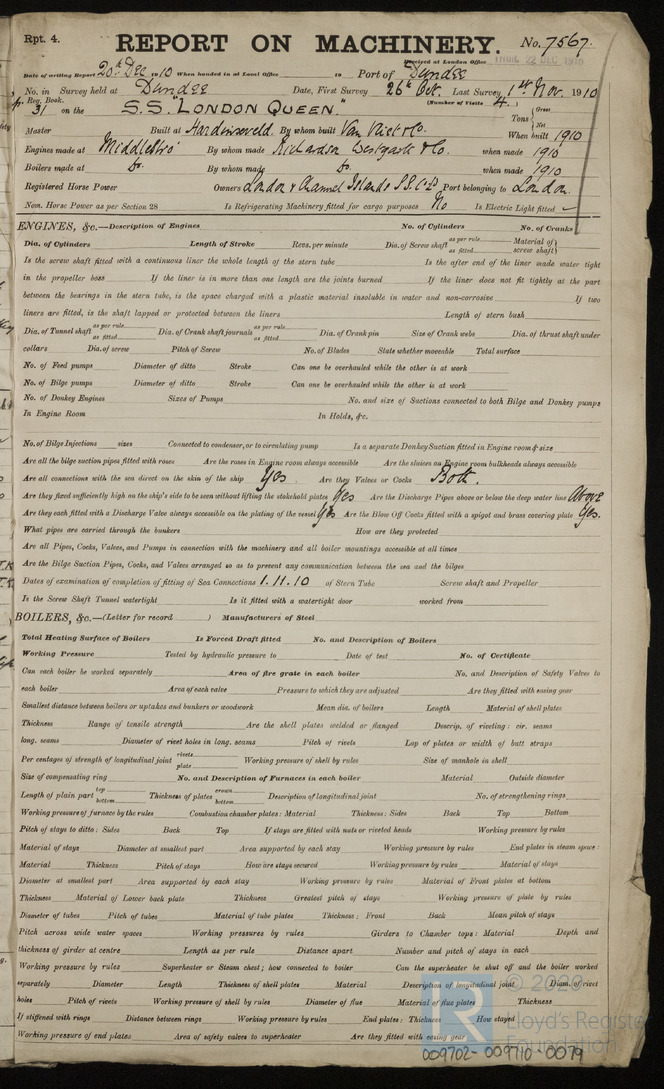 Rpt. 4. REPORT ON MACHINERY. No. 7567.
Received at London Office THUR. 22 DEC 1910
Date of writing Report 20th Dec 1910 When handed in at Local Office 19 Port of Dundee
No. in Survey held at Dundee Date, First Survey 26th Oct. Last Survey 1st Nov. 1910
Reg. Book. (Number of Visits 4.)
31 on the S.S. "LONDON QUEEN." Tons { Gross Net
Master Built at Hardinxveld. By whom built Van Vliet & Co. When built 1910
Engines made at Middlesbro' By whom made Richardson Westgarth & Co. when made 1910
Boilers made at Do. By whom made Do. when made 1910
Registered Horse Power Owners London & Channel Islands S.S. Co Ld Port belonging to London.
Nom. Horse Power as per Section 28 Is Refrigerating Machinery fitted for cargo purposes No Is Electric Light fitted
ENGINES, &c.—Description of Engines No. of Cylinders No. of Cranks
Dia. of Cylinders Length of Stroke Revs. per minute Dia. of Screw shaft as per rule as fitted Material of screw shaft
Is the screw shaft fitted with a continuous liner the whole length of the stern tube Is the after end of the liner made water tight
in the propeller boss If the liner is in more than one length are the joints burned If the liner does not fit tightly at the part
between the bearings in the stern tube, is the space charged with a plastic material insoluble in water and non-corrosive If two
liners are fitted, is the shaft lapped or protected between the liners Length of stern bush
Dia. of Tunnel shaft as per rule as fitted Dia. of Crank shaft journals as per rule as fitted Dia. of Crank pin Size of Crank webs Dia. of thrust shaft under
collars Dia. of screw Pitch of Screw No. of Blades State whether moveable Total surface
No. of Feed pumps Diameter of ditto Stroke Can one be overhauled while the other is at work
No. of Bilge pumps Diameter of ditto Stroke Can one be overhauled while the other is at work
No. of Donkey Engines Sizes of Pumps No. and size of Suctions connected to both Bilge and Donkey pumps
In Engine Room In Holds, &c.
No. of Bilge Injections sizes Connected to condenser, or to circulating pump Is a separate Donkey Suction fitted in Engine room & size
Are all the bilge suction pipes fitted with roses Are the roses in Engine room always accessible Are the sluices on Engine room bulkheads always accessible
Are all connections with the sea direct on the skin of the ship Yes Are they Valves or Cocks Both.
Are they fixed sufficiently high on the ship's side to be seen without lifting the stokehold plates Yes Are the Discharge Pipes above or below the deep water line Above
Are they each fitted with a Discharge Valve always accessible on the plating of the vessel Yes Are the Blow Off Cocks fitted with a spigot and brass covering plate Yes.
What pipes are carried through the bunkers How are they protected
Are all Pipes, Cocks, Valves, and Pumps in connection with the machinery and all boiler mountings accessible at all times
Are the Bilge Suction Pipes, Cocks, and Valves arranged so as to prevent any communication between the sea and the bilges
Dates of examination of completion of fitting of Sea Connections 1.11.10 of Stern Tube Screw shaft and Propeller
Is the Screw Shaft Tunnel watertight Is it fitted with a watertight door worked from
BOILERS, &c.—(Letter for record ) Manufacturers of Steel
Total Heating Surface of Boilers Is Forced Draft fitted No. and Description of Boilers
Working Pressure Tested by hydraulic pressure to Date of test No. of Certificate
Can each boiler be worked separately Area of fire grate in each boiler No. and Description of Safety Valves to
each boiler Area of each valve Pressure to which they are adjusted Are they fitted with easing gear
Smallest distance between boilers or uptakes and bunkers or woodwork Mean dia. of boilers Length Material of shell plates
Thickness Range of tensile strength Are the shell plates welded or flanged Descrip. of riveting: cir. seams
long. seams Diameter of rivet holes in long. seams Pitch of rivets Lap of plates or width of butt straps
Per centages of strength of longitudinal joint rivets plate Working pressure of shell by rules Size of manhole in shell
Size of compensating ring No. and Description of Furnaces in each boiler Material Outside diameter
Length of plain part top bottom Thickness of plates crown bottom Description of longitudinal joint No. of strengthening rings
Working pressure of furnace by the rules Combustion chamber plates: Material Thickness: Sides Back Top Bottom
Pitch of stays to ditto: Sides Back Top If stays are fitted with nuts or riveted heads Working pressure by rules
Material of stays Diameter at smallest part Area supported by each stay Working pressure by rules End plates in steam space:
Material Thickness Pitch of stays How are stays secured Working pressure by rules Material of stays
Diameter at smallest part Area supported by each stay Working pressure by rules Material of Front plates at bottom
Thickness Material of Lower back plate Thickness Greatest pitch of stays Working pressure of plate by rules
Diameter of tubes Pitch of tubes Material of tube plates Thickness: Front Back Mean pitch of stays
Pitch across wide water spaces Working pressures by rules Girders to Chamber tops: Material Depth and
thickness of girder at centre Length as per rule Distance apart Number and pitch of stays in each
Working pressure by rules Superheater or Steam chest; how connected to boiler Can the superheater be shut off and the boiler worked
separately Diameter Length Thickness of shell plates Material Description of longitudinal joint Diam. of rivet
holes Pitch of rivets Working pressure of shell by rules Diameter of flue Material of flue plates Thickness
If stiffened with rings Distance between rings Working pressure by rules End plates: Thickness How stayed
Working pressure of end plates Area of safety valves to superheater Are they fitted with easing gear
© 2020
Lloyd's Register
Foundation
009702-009710-0079